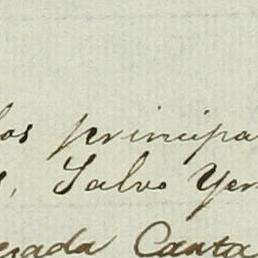 los principa
s, Salvo Yer
erada Canta